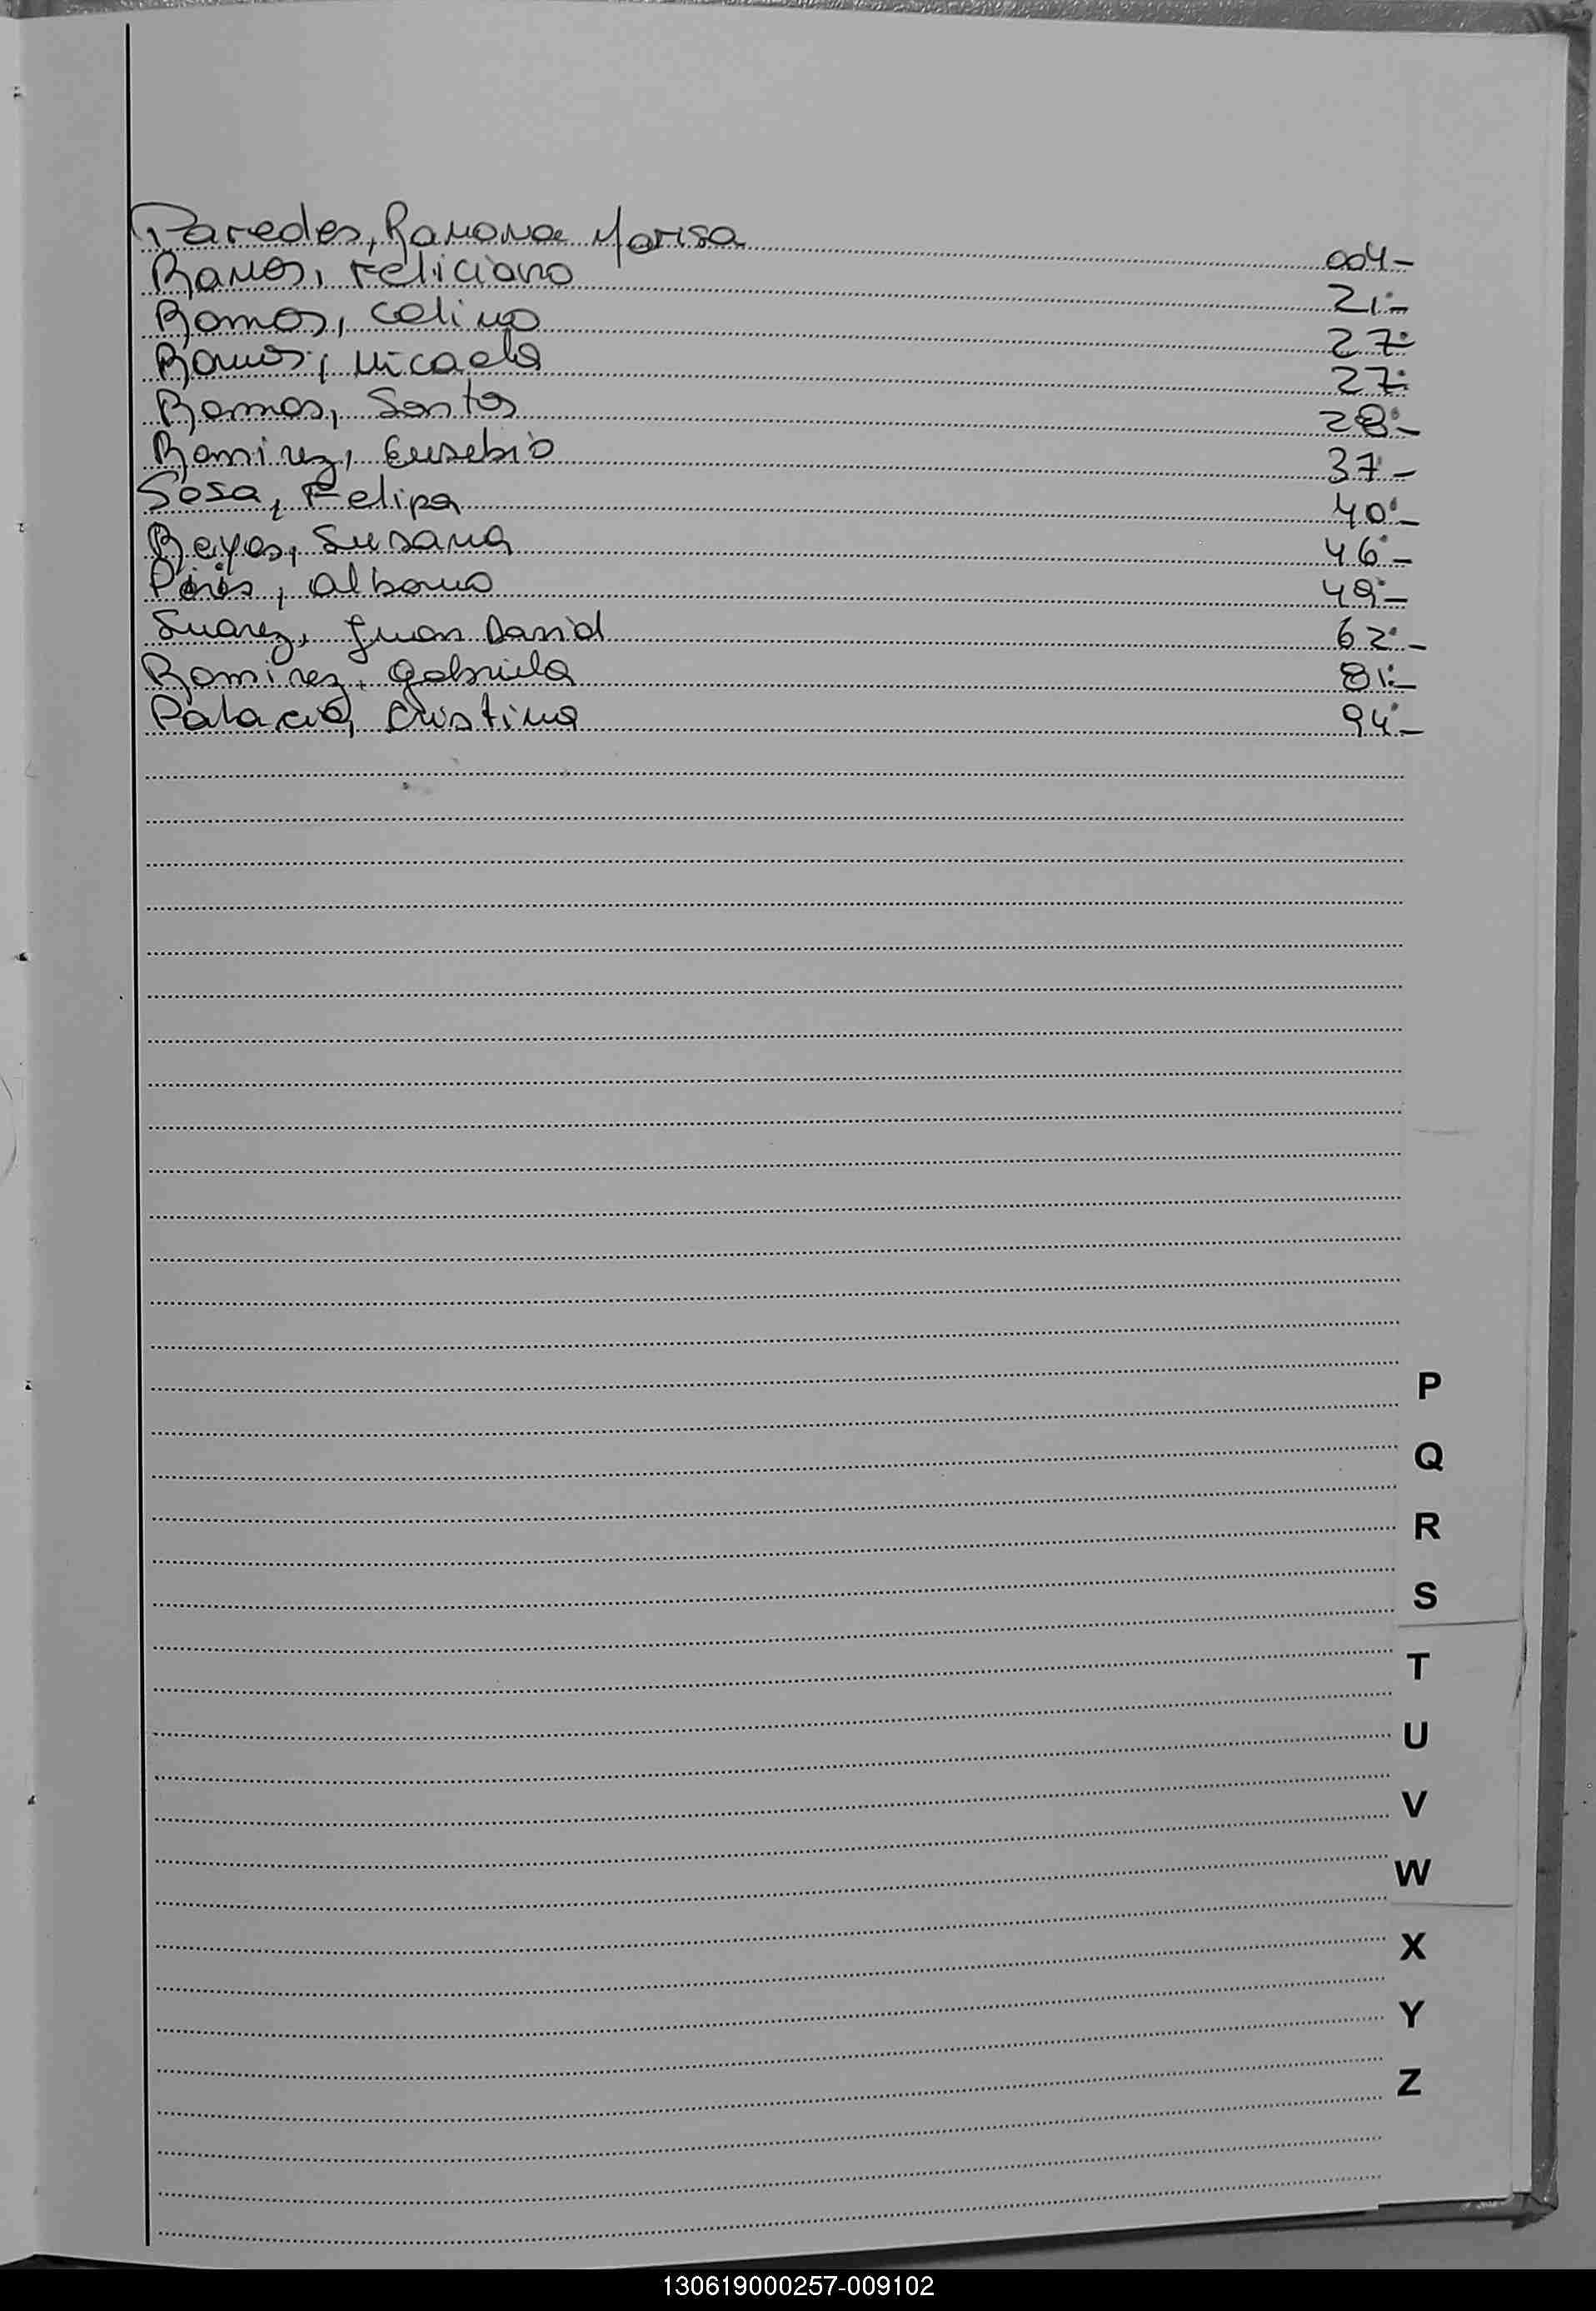 Paredes, Ramona Marisa 004-
Ramos, Feliciano 21-
Ramos, Celino 27-
Ramos, Micaela 27-
Ramos, Santos 28-
Ramirez, Eusebio 37-
Sosa, Felipa 40-
Reyes, Susana 46-
Piris, Albano 49-
Suarez, Juan David 62-
Ramirez, Gabriela 81-
Palacio, Cristina 94-
P
Q
R
S
T
U
V
W
X
Y
Z
130619000257-009102